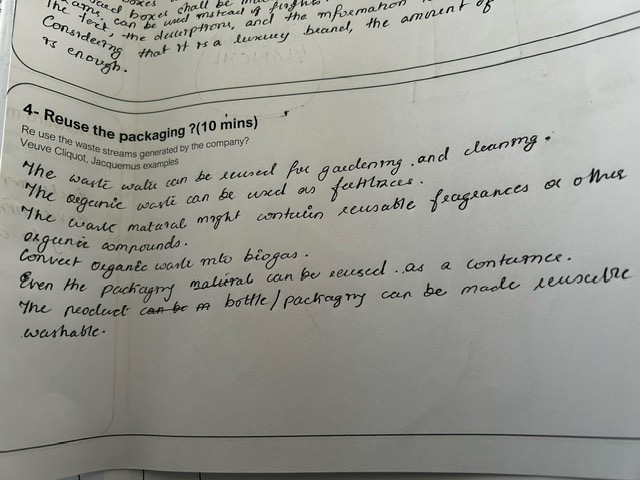 boxes shall be
can be used instead of flights
The text, the descriptions, and the information
Considering that it is a luxury brand, the amount of
is enough.
4- Reuse the packaging ?(10 mins)
Re use the waste streams generated by the company?
Veuve Cliquot, Jacquemus examples
The waste water can be reused for gardening and cleaning.
The organic waste can be used as fertilizers.
The waste material might contain reusable fragrances or other
organic compounds.
Convert organic waste into biogas.
Even the packaging material can be reused as a container.
The product can be m bottle/packaging can be made reuseable
washable.